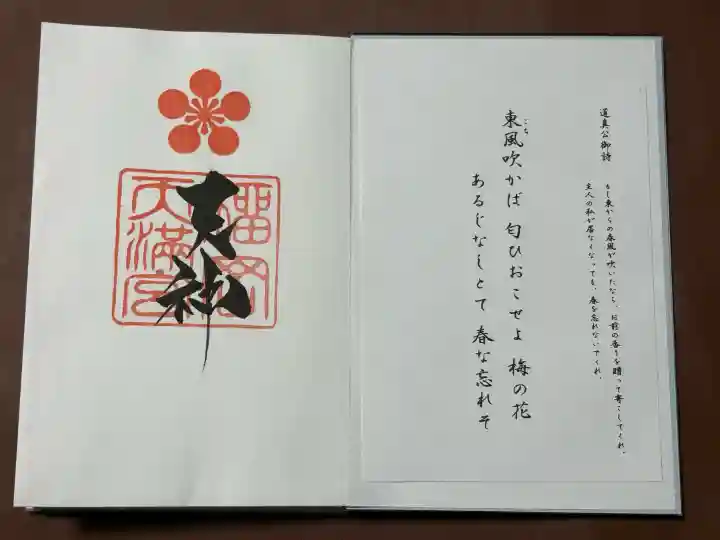 道真公御詩
もし東からの春風が吹いたなら、お前の香りを贈って寄こしてくれ、
主人の私が居なくなっても、春を忘れないでくれ。
こち
東風吹かば 匂ひおこせよ 梅の花
あるじなしとて 春な忘れそ
天神
天満宮